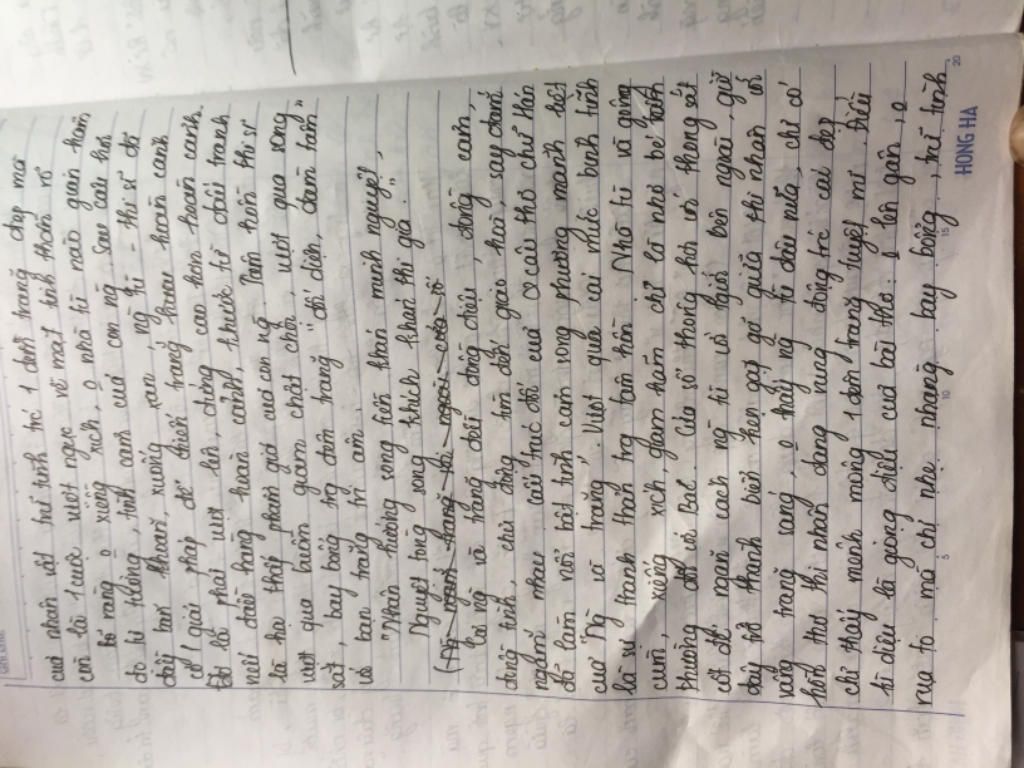 của nhân vật trữ tình trc 1 đêm trăng đẹp mà
còn là 1 cuộc vượt ngục về mặt tinh thần rõ
bó ràng xiềng xích, nhà tù nào gian ham
đc tư tưởng, tình cảm của con ng Sau câu hỏi
đầy băn khoăn, xuống xao, ng tù - thi sĩ đã
có giải pháp để đứng trong hoàn cảnh
Đó là phải vượt lên, đứng cao hơn hoàn cảnh.
mới đầu hàng hoàn cảnh, thước từ đấu tranh
là hạ thấp phẩm giá của con ng Tâm hồn thi sĩ
vượt qua buồng giam chật chội, vượt qua song
sắt, bay bổng trg đêm trăng " đối diện, đàm tâm"
với bạn trăng tri âm.
"Nhân hướng song tiền khán minh nguyệt,
Nguyệt tòng song khích khán thi gia."
Cả ng và trăng đấy đồng điệu, đồng cảm,
đồng tình, chủ động tìm đến giao hoà, say đắm
ngắm nhau cấu trúc đối của 2 câu thơ chữ Hán
đã làm nổi bật tình cảm song phương mãnh liệt
của "ng" và trăng". Vượt qua cái mức bình tĩnh
là sự tranh thần trg tâm hồn Nhà tù và gông
cùm, xiềng xích, giam hãm chỉ là nhỏ bé tầm
thường đối với Bác. Cửa sổ thông hơi với thanh sắt
cốt để ngăn cách ng tù với TG bên ngoài, giờ
đây trở thành bên hẹn gặp gỡ giữa thi nhân với
vầng trăng sáng, thấy ng tù đâu nữa, chỉ có
hồn thơ thi nhân đang rung động trc cái đẹp
chỉ thấy mênh mông 1 đêm trăng tuyệt mĩ. Điều
kì diệu là giọng điệu của bài thơ: lên gân,
rụa to mà chỉ nhẹ nhàng bay bổng, trữ tình
5 10 15 20
HONG HA